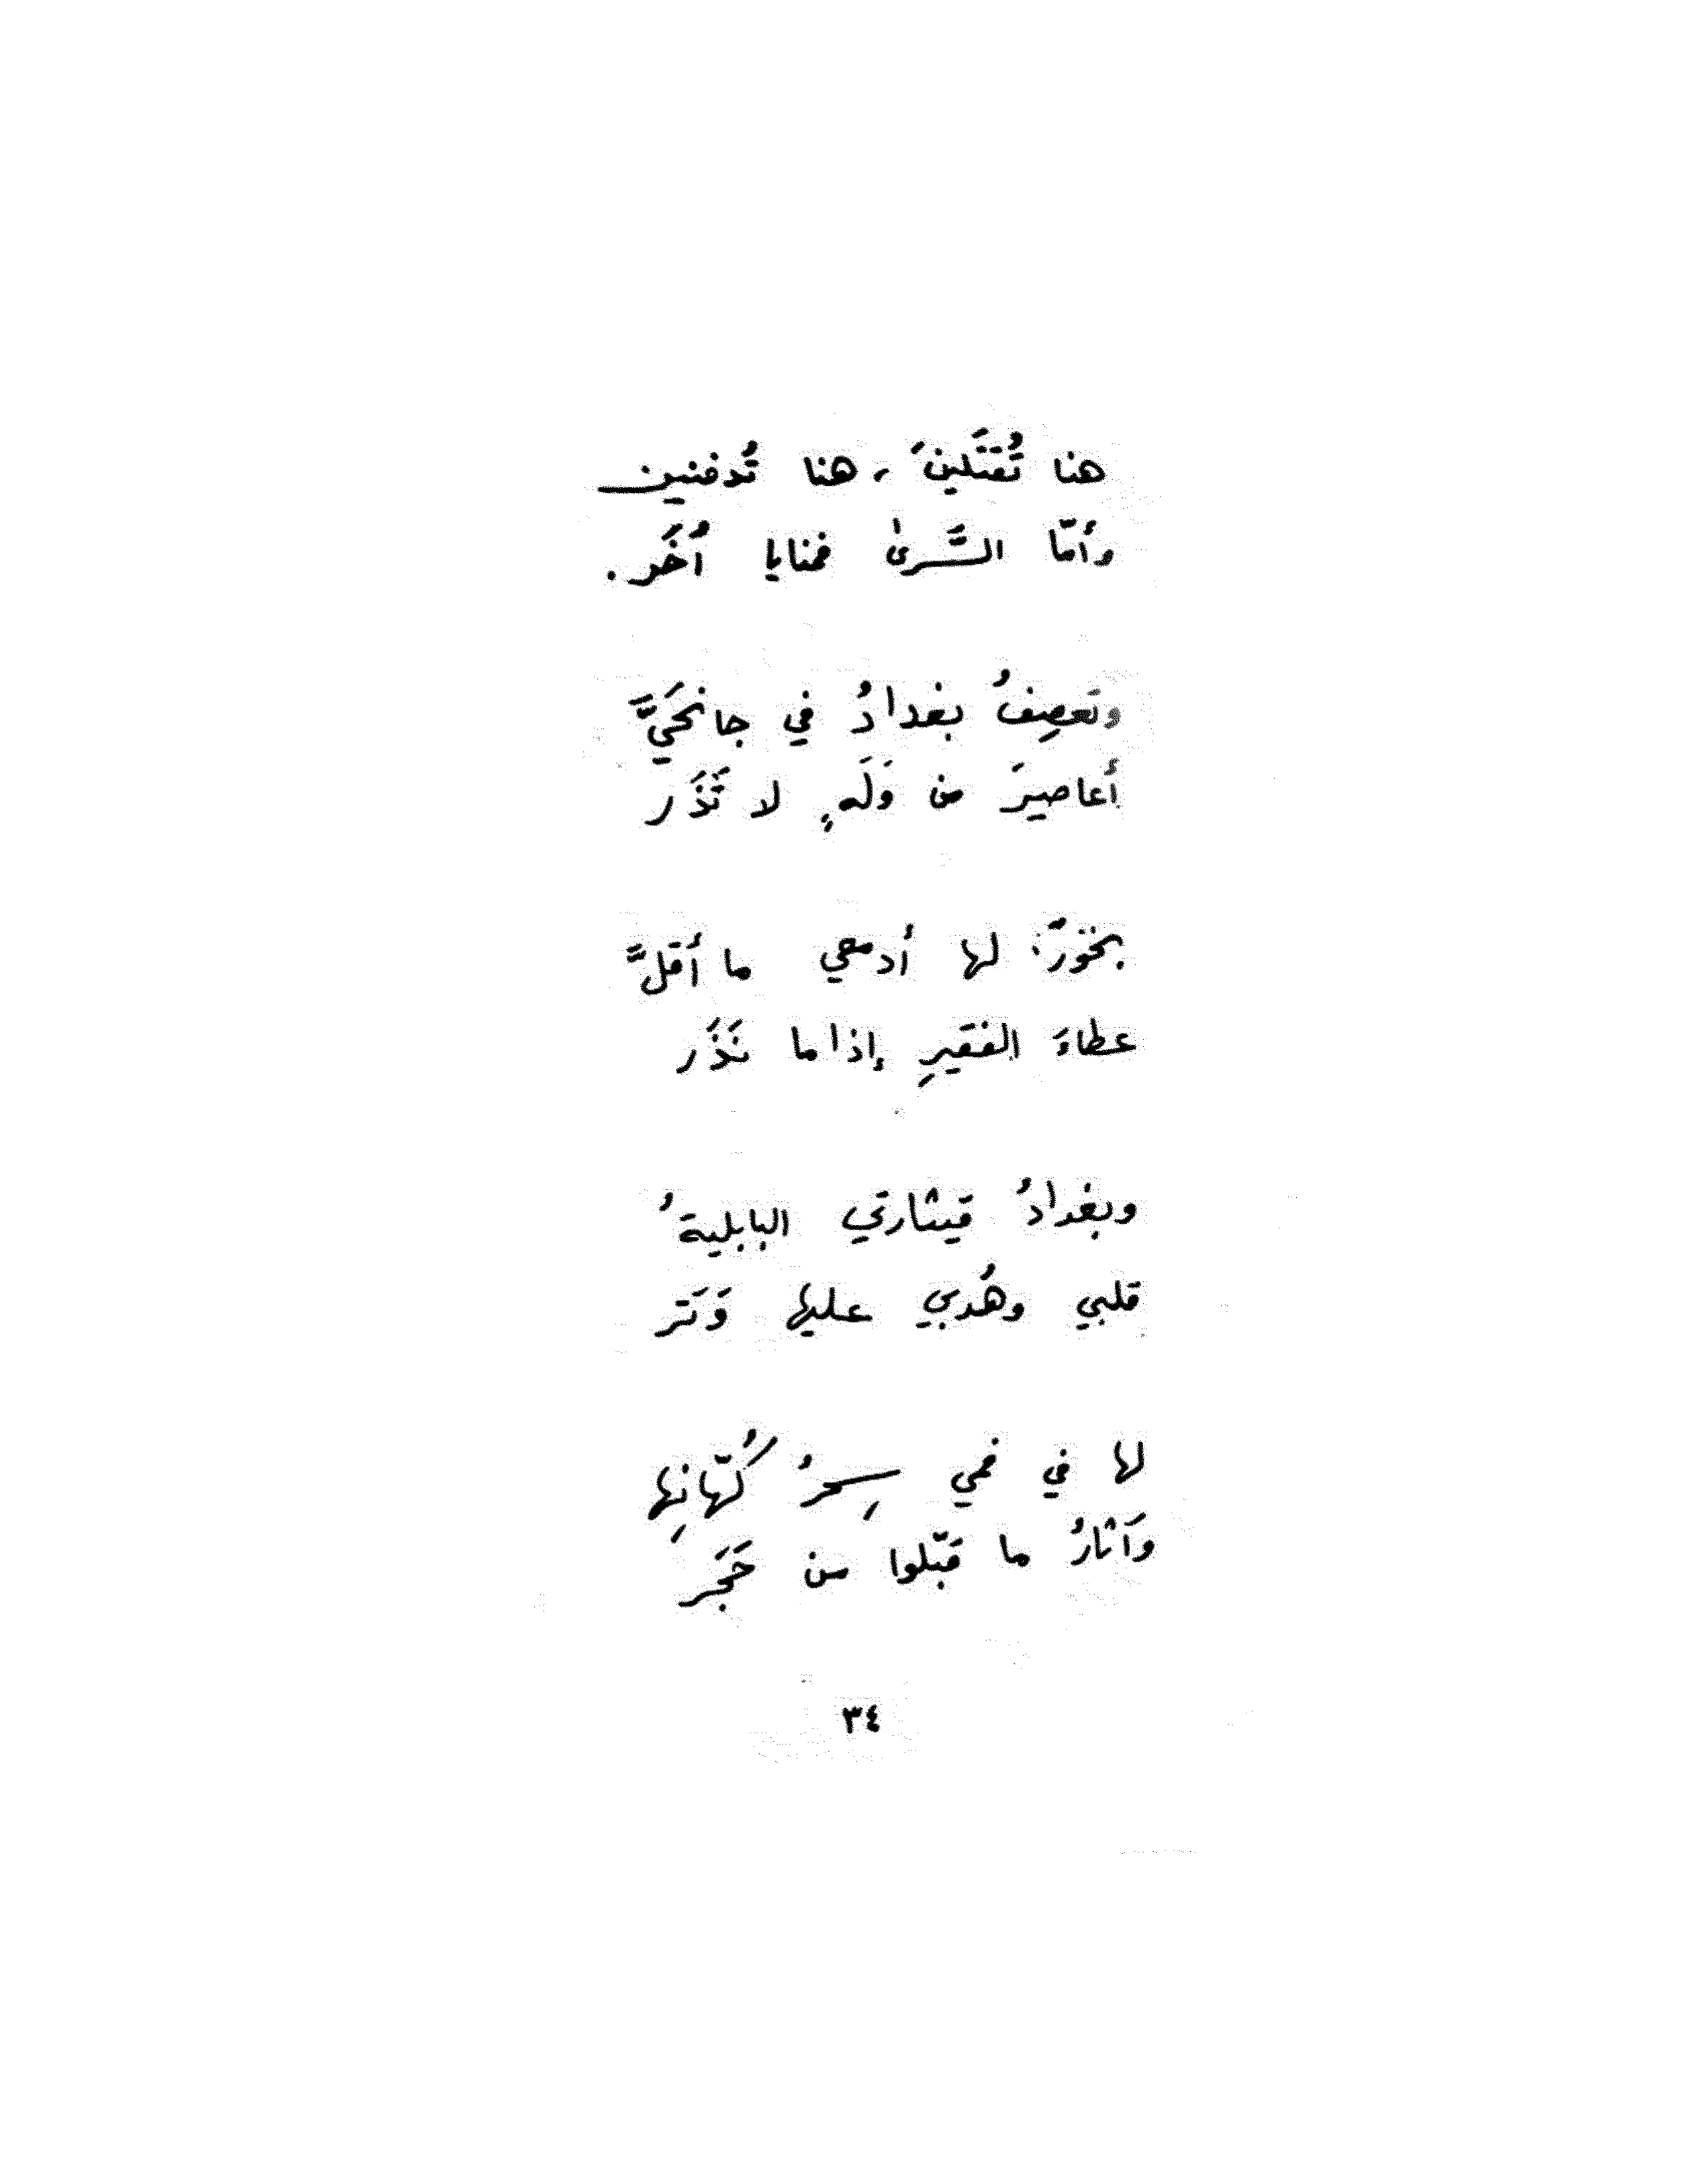 هنا تُقتَلينَ ، هنا تُدفنين
وأمّا السُّرىٰ فمنايا أُخَر .
وتَعصِفُ بغدادُ في جانحَيَّ
أعاصيرَ من وَلَهٍ لا تَذَر
بخورٌ لها أدمعي ما أقلَّ
عطاءَ الفقيرِ إذا ما نَذَر
وبغدادُ قيثارتي البابليةُ
قلبي وهُدبي عليها وَتَر
لها في فمي سِحرُ كُهّانِها
وَآثارُ ما قبّلوا من حَجَر
٣٤